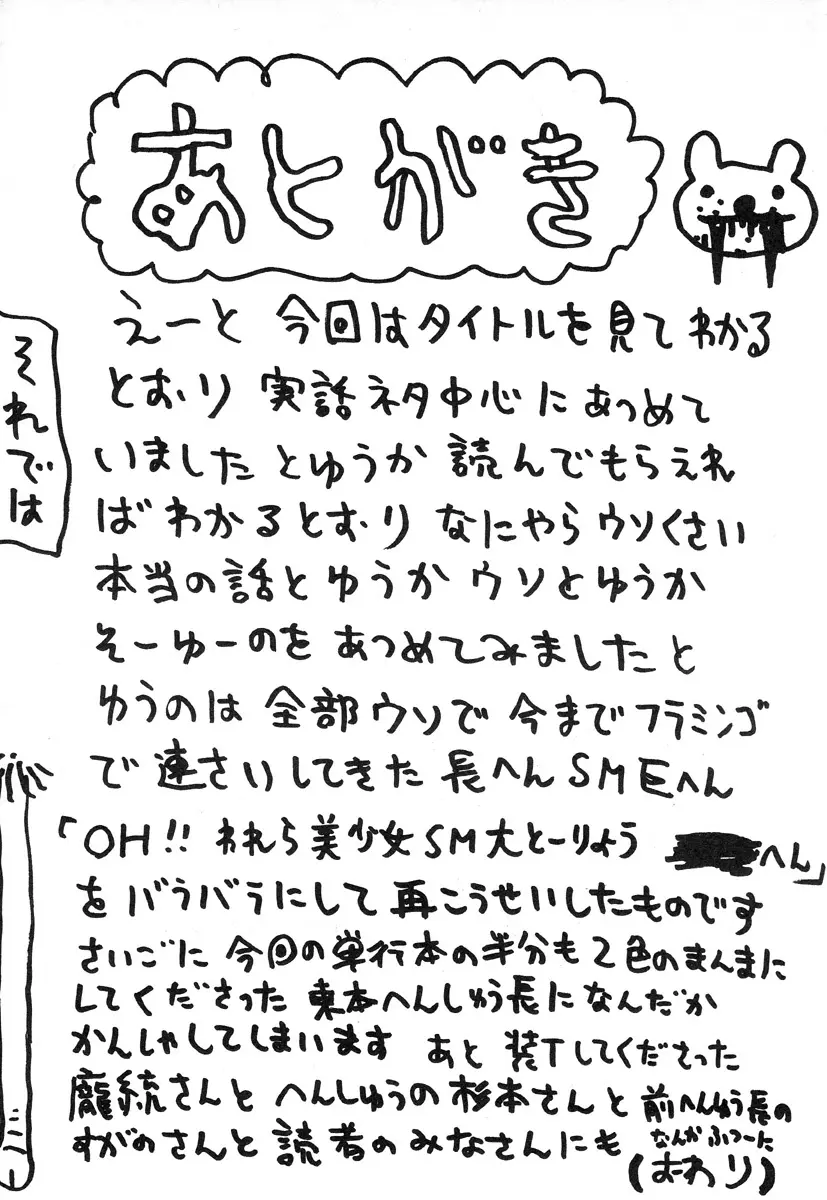 あとがき
えーと 今回はタイトルを見てわかる
とおり 実話ネタ中心にあつめて
いました とゆうか 読んでもらえれ
ば わかるとおり なにやらウソくさい
本当の話とゆうか ウソとゆうか
そーゆーのを あつめてみましたと
ゆうのは 全部ウソで 今までフラミンゴ
で 連さいしてきた 長へんSM巨へん
「OH!! われら美少女SM大とーりょう へん」
を バラバラにして 再こうせいしたものです
さいごに 今回の単行本の半分も2色のまんまに
してくださった 東本へんしゅう長に なんだか
かんしゃしてしまいます あと 装Tしてくださった
龐統さんと へんしゅうの杉本さんと 前へんしゅう長の
すがのさんと 読者のみなさんにも なんかふつーに
(おわり)
それでは